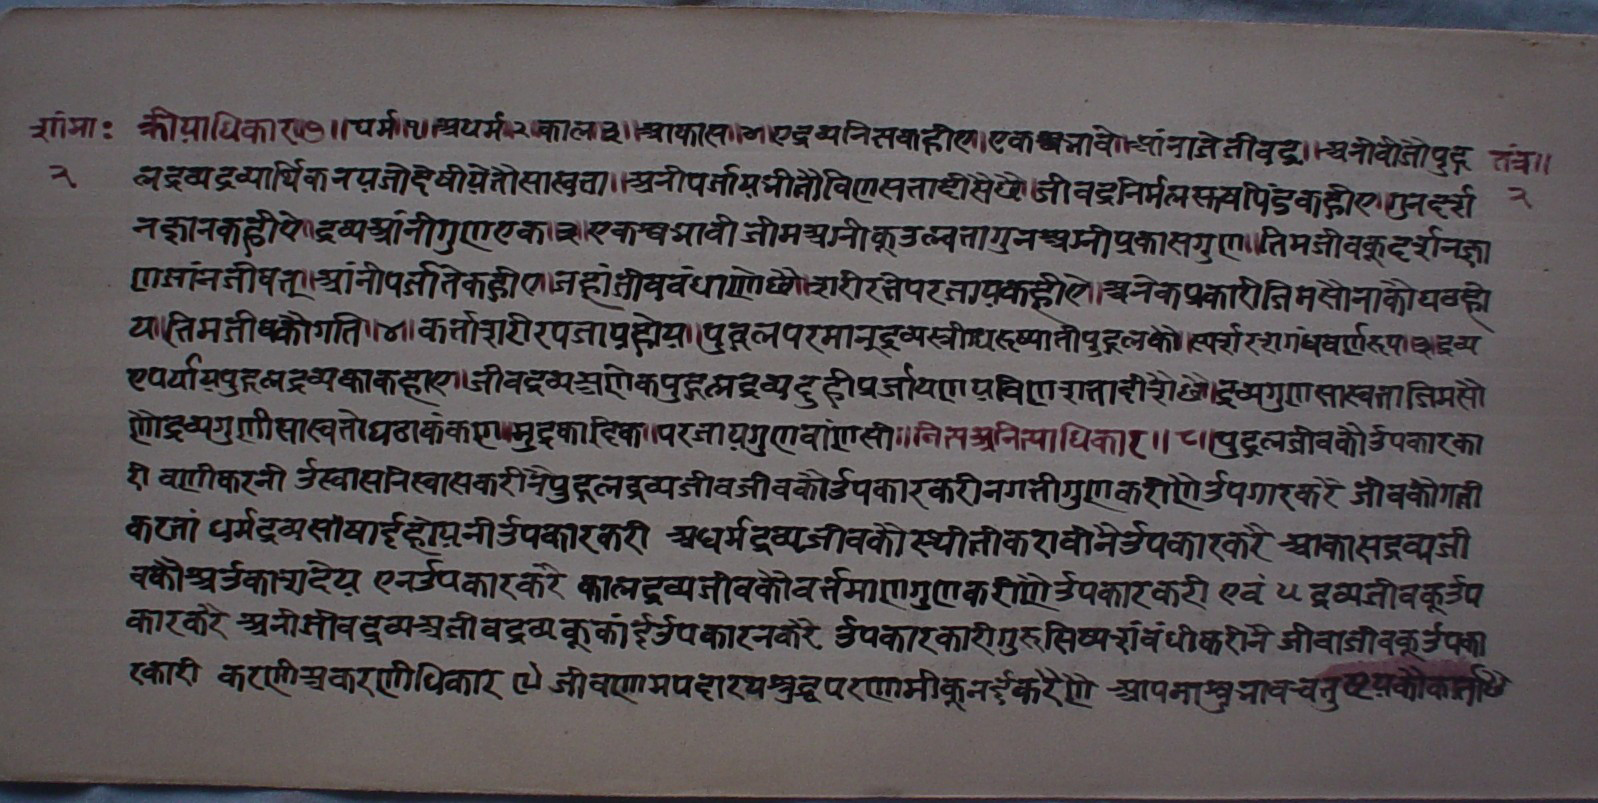 शांमाः क्रीयाधिकार ७ ॥ धर्म १ अधर्म २ काल ३ ॥ आकास ४ ए द्रव्य नित्स कहीए ॥ एक स्वभावे ॥ आंना जे जीवद्र ॥ अनी वीजौ पुद्ग तंत्र ॥
२ लद्रव्य द्रव्यार्थिक नय जो देषीये तौ सास्वत्ता ॥ अनी पर्जाय भी तौ विणसत्ता दीसै छै । जीवद्र निर्मल पिंड कहीए । गुन दर्श २
न ज्ञान कहीये । द्रव्य आंनी गुण एक ३ एक श्वभावी जीम अग्नी कू उत्श्नत्ता गुन अग्नी प्रकास गुण । तिम जीव कू दर्शन ज्ञा
ण जांन जीवत्त् । आंनी पर्जा ते कहीए । जहां जीव बंधाणे छै । शरीर ते परजाय कहीए । अनेक प्रकारी जिम सौना कौ घठ हो
य । तिम जीव कौ गति । ४ । कर्त्ता शरीर पजाय होय । पुद्गल परमानू द्रव्य पुद्गल कौ । स्पर्श रश गंध वर्ण रूप ३ द्रव्य
ए पर्याय पुद्गल द्रव्य का कहाए । जीव द्रव्य अणेक पुद्गल द्रव्य दुही प्रर्जाय णय विणशत्ता दीशै छै । द्रव्य गुण सास्वत्ता जिम सौ
णै द्रव्य गुणी सास्वतो घठा कंकण । मुद्रकादिक । परजाय गुणवांण सी ॥ नित्स अनित्याधिकार ॥ ८ । पुद्गल जीव कौ उपकार का
री वाणी करनी उस्वास निस्वास करी नै पुद्गल द्रव्य जीव जीव कौ उपकार करी न गत्ती गुण करी णै उपगार करै जीव कौ गत्ती
करतां धर्म द्रव्य साषाई होय नी उपकार करी अधर्म द्रव्य जीव कौ स्थीत्ती करावी नै उपकार करै आकास द्रव्य जी
व कौ अउकाश देय एन उपकार करै काल द्रव्य जीव कौ वर्त्तमाण गुण करी णै उपकार करी एवं ५ द्रव्य जीव कू उप
कार करै अनी जीव द्रव्य अजीव द्रव्य कू कांई उपकार न करै उपकार कारी गुरु सिष्य शंबंधी करी नै जीवाजीव कू उपका
रकारी करणी अकरणीधिकार ९ जीव श्रुद्ध परणमी कू नई करै णै आपना श्वभाव चतुष्टय कौ कर्त्ता छै